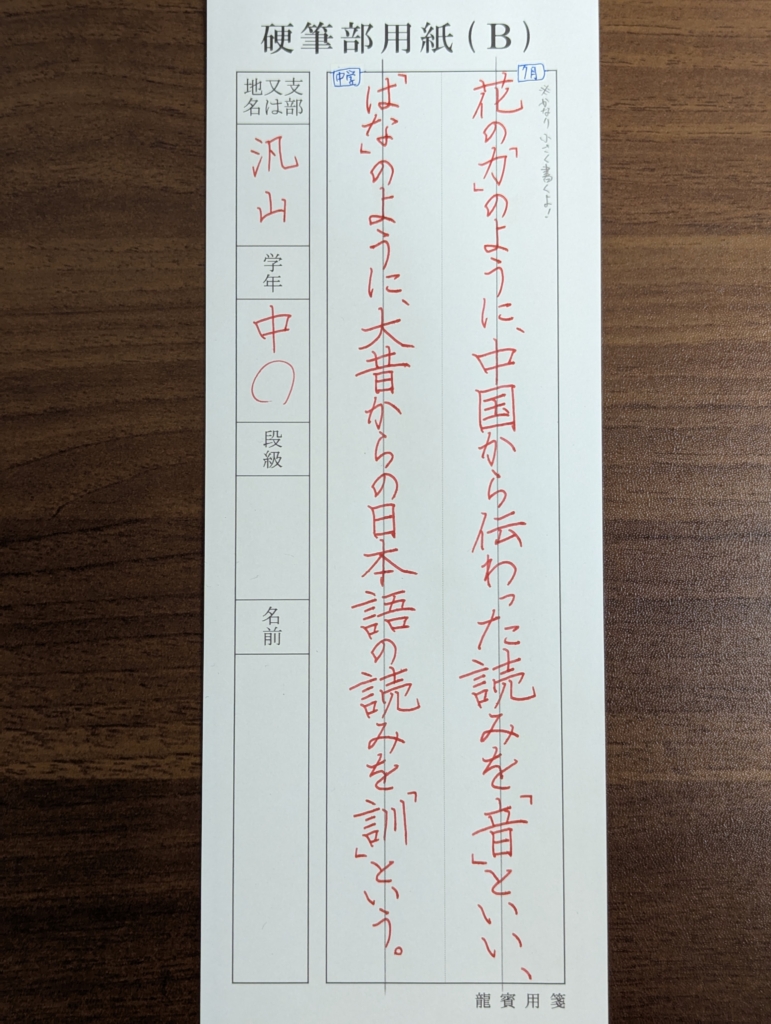 硬筆部用紙(B)
7月
※かなり小さく書くよ!
花の「カ」のように、中国から伝わった読みを「音」といい、
中学
「はな」のように、大昔からの日本語の読みを「訓」という。
支部
又は
地名
汎山
学年
中〇
段級
名前
龍賓用箋